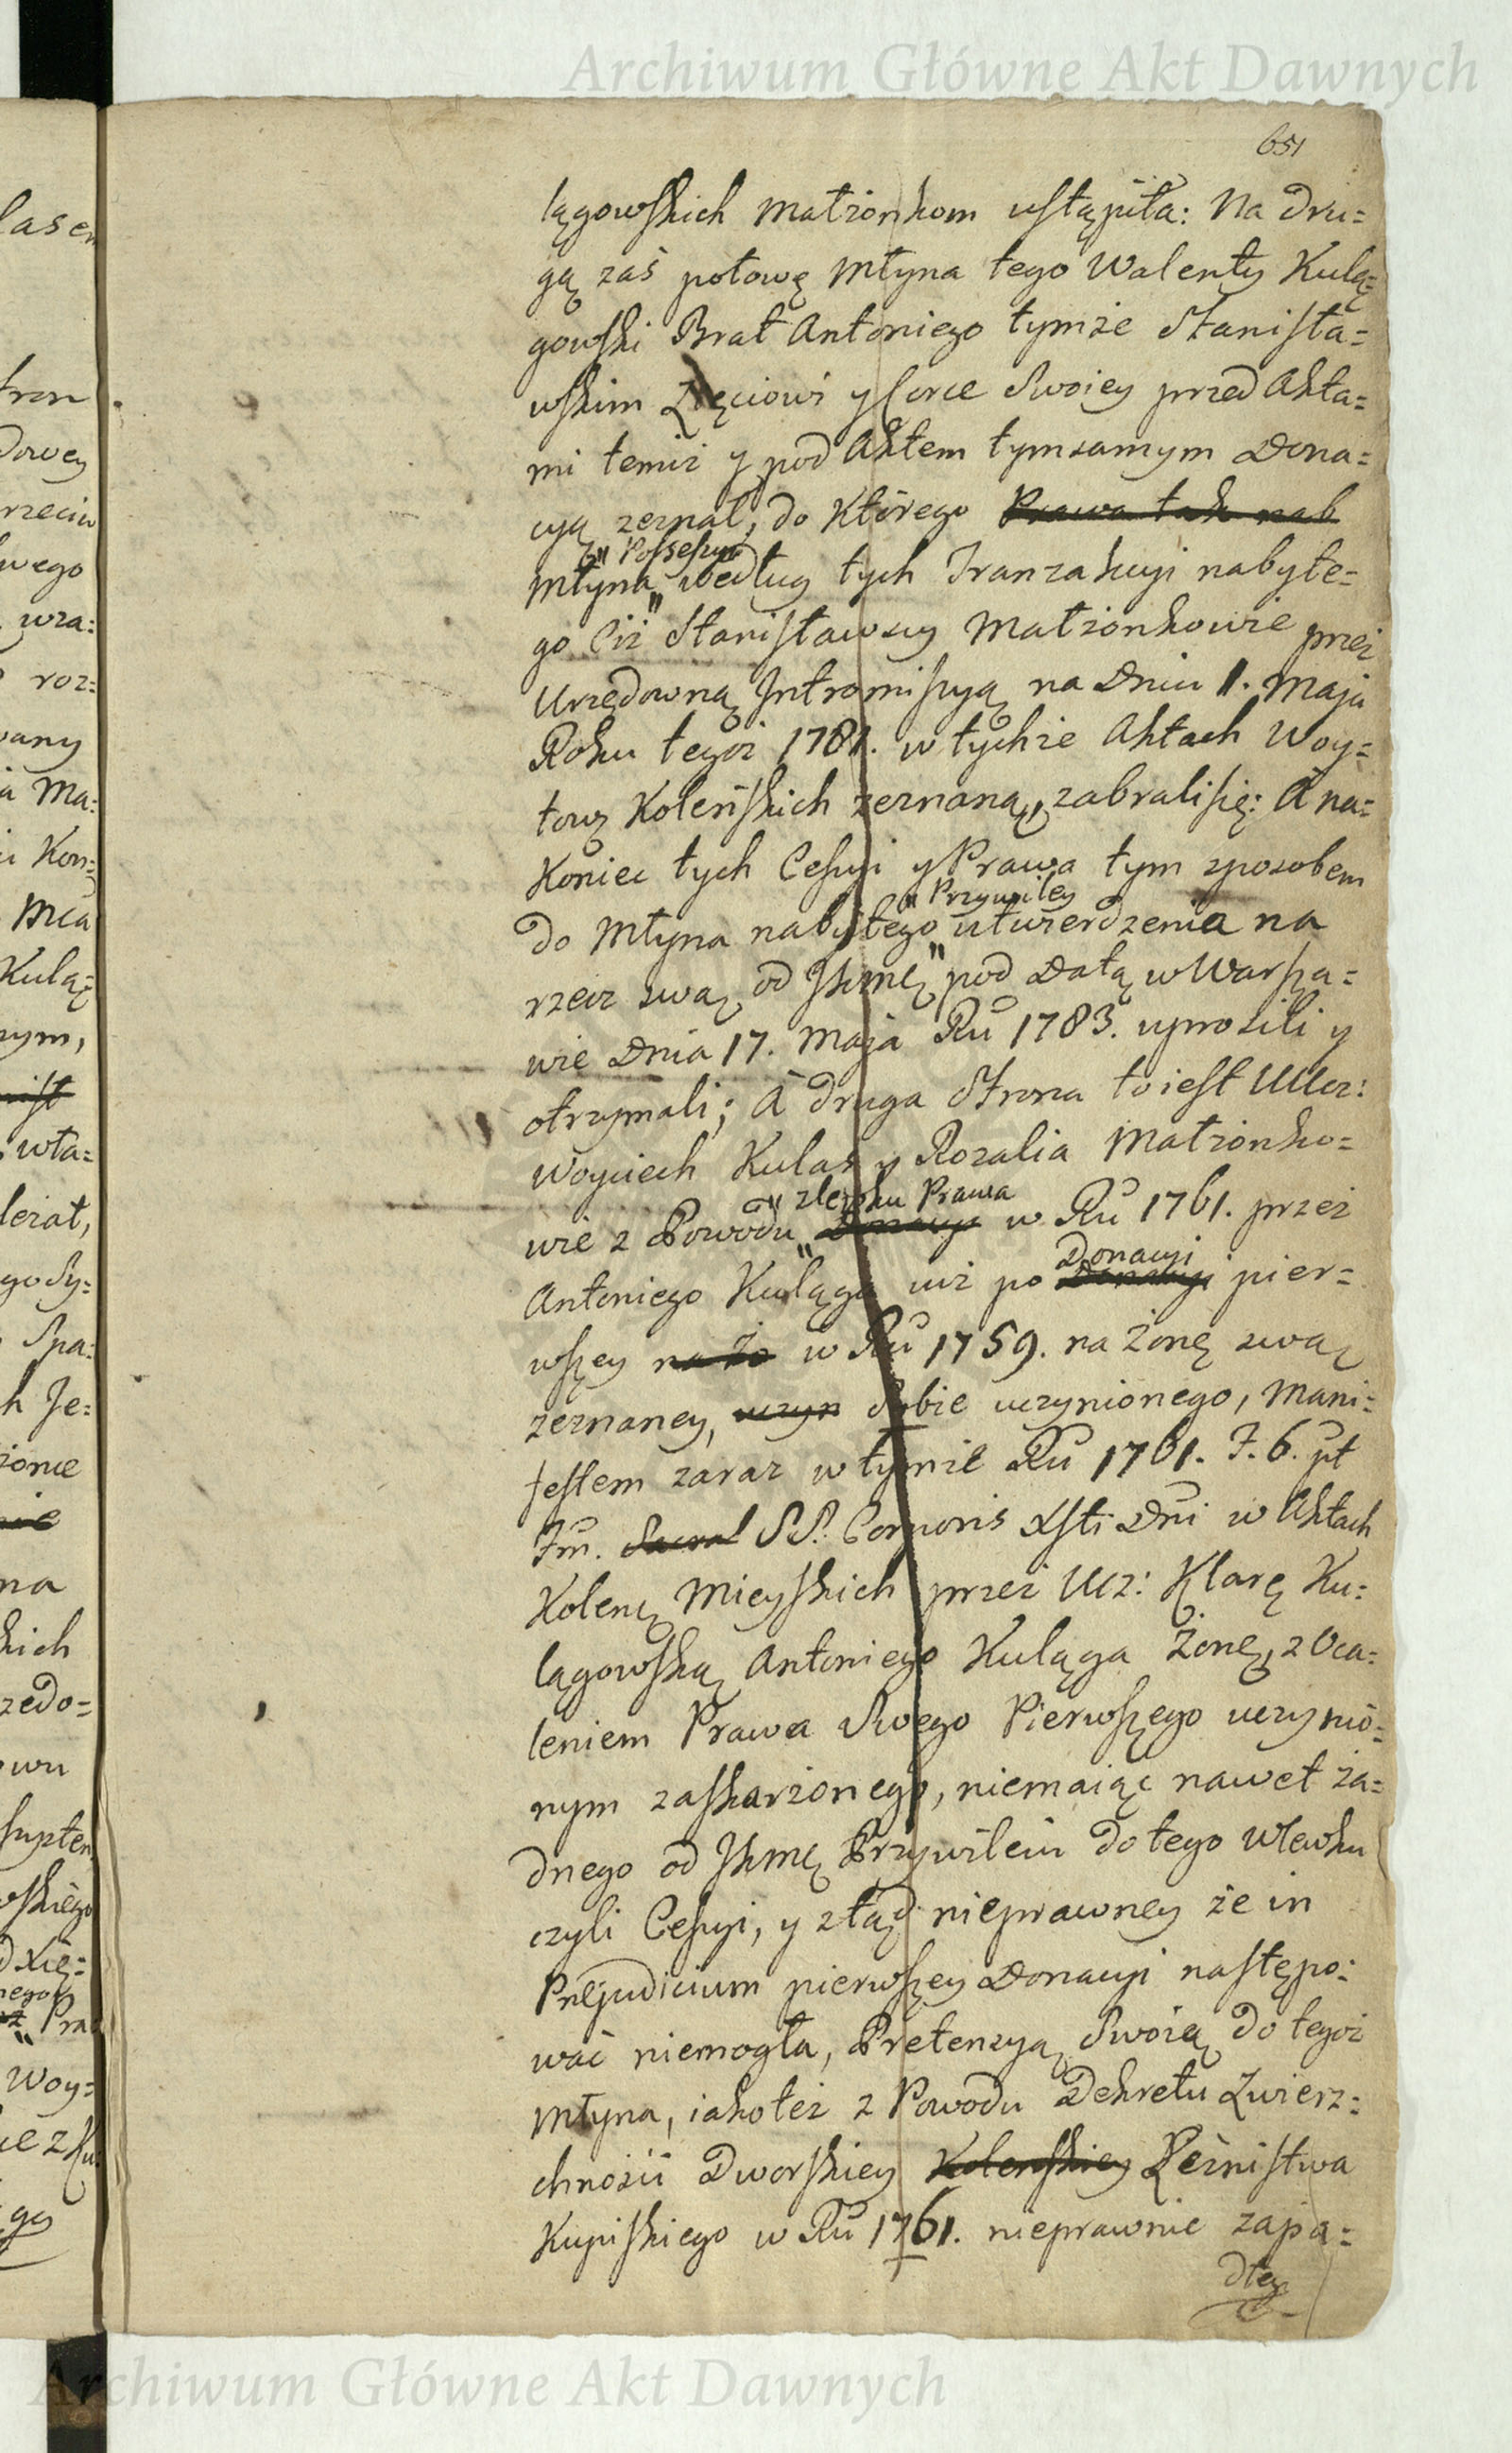 Archiwum Główne Akt Dawnych
651
lągowskich Małżonkom ustąpiła: Na dru=
gą zaś połowę Młyna tego Walenty Kulą=
gowski Brat Antoniego tymże Stanisła=
wskim Zięciowi y Corce Swoiey przed Akta=
mi temiż y pod Aktem tymsamym Dona=
cyą zeznał, do Którego Prawa tak nab
" Possessyi
Młyna " według tych Tranzakcyi nabyte=
go Ciż Stanisławscy Małżonkowie przez
Urzędowną Intromissyą na Dniu 1. Maja
Roku tegoż 1781. w tychże Aktach Woy=
tow. Koleńskich zeznaną, zabrali się: A na=
koniec tych Cessyi y Prawa tym sposobem
" Przywiley
do Młyna nabytego " utwierdzenia na
rzecz swą od JKmci pod Datą w Warsza=
wie Dnia 17. Maja Ru 1783. uprosili y
otrzymali; A druga Strona to iest Ucz:
Woyciech Kulas y Rozalia Małżonko=
" zlewku Prawa
wie z Powodu " Donacyi w Ru 1761. przez
Donacyi
Antoniego Kuląga iuż po Donacyi pier=
wszey na żo w Ru 1759. na żonę swą
zeznaney, uczyn Sobie uczynionego, Mani=
festem zaraz w tymże Ru 1761. F. 6. pt
Fm. Sacral SS. Corporis Xsti Dni w Aktach
Kolen. Mieyskich przez Ucz: Klarę Ku=
lągowską Antoniego Kuląga Żonę, z Oca=
leniem Prawa Swego Pierwszego uczynio=
nym zaskarżonego, niemaiąc nawet ża=
dnego od JKmci Przywileiu do tego wlewku
czyli Cessyi, y ztąd nieprawney że in
Prejudicium pierwszey Donacyi następo=
wać niemogła, Pretensyą Swoią do tegoż
Młyna, iakoteż z Powodu Dekretu Zwierz=
chności Dworskiey Kolenskiey Leśnistwa
Kupiskiego w Ru 1761. nieprawnie zapa=
dłey
Archiwum Główne Akt Dawnych